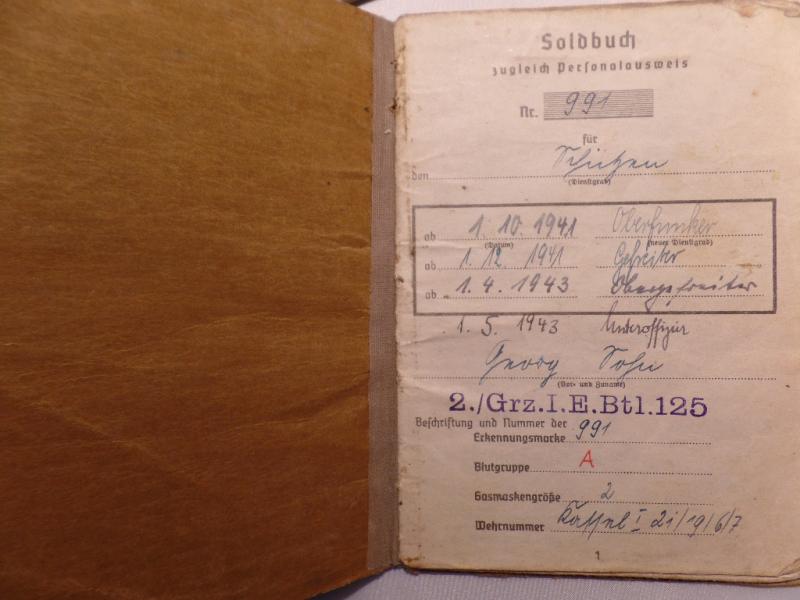 Soldbuch
zugleich Personalausweis
Nr. 991
für
den Schützen
(Dienstgrad)
ab 1. 10. 1941 Oberfunker
(Datum) (neuer Dienstgrad)
ab 1. 12 1941 Gefreiter
ab 1. 4. 1943 Obergefreiter
1. 5. 1943 Unteroffizier
Georg
(Vor- und Zuname)
2./Grz.I.E.Btl.125
Beschriftung und Nummer der
Erkennungsmarke 991
Blutgruppe A
Gasmaskengröße 2
Wehrnummer Kassel I 21/19/6/7
1